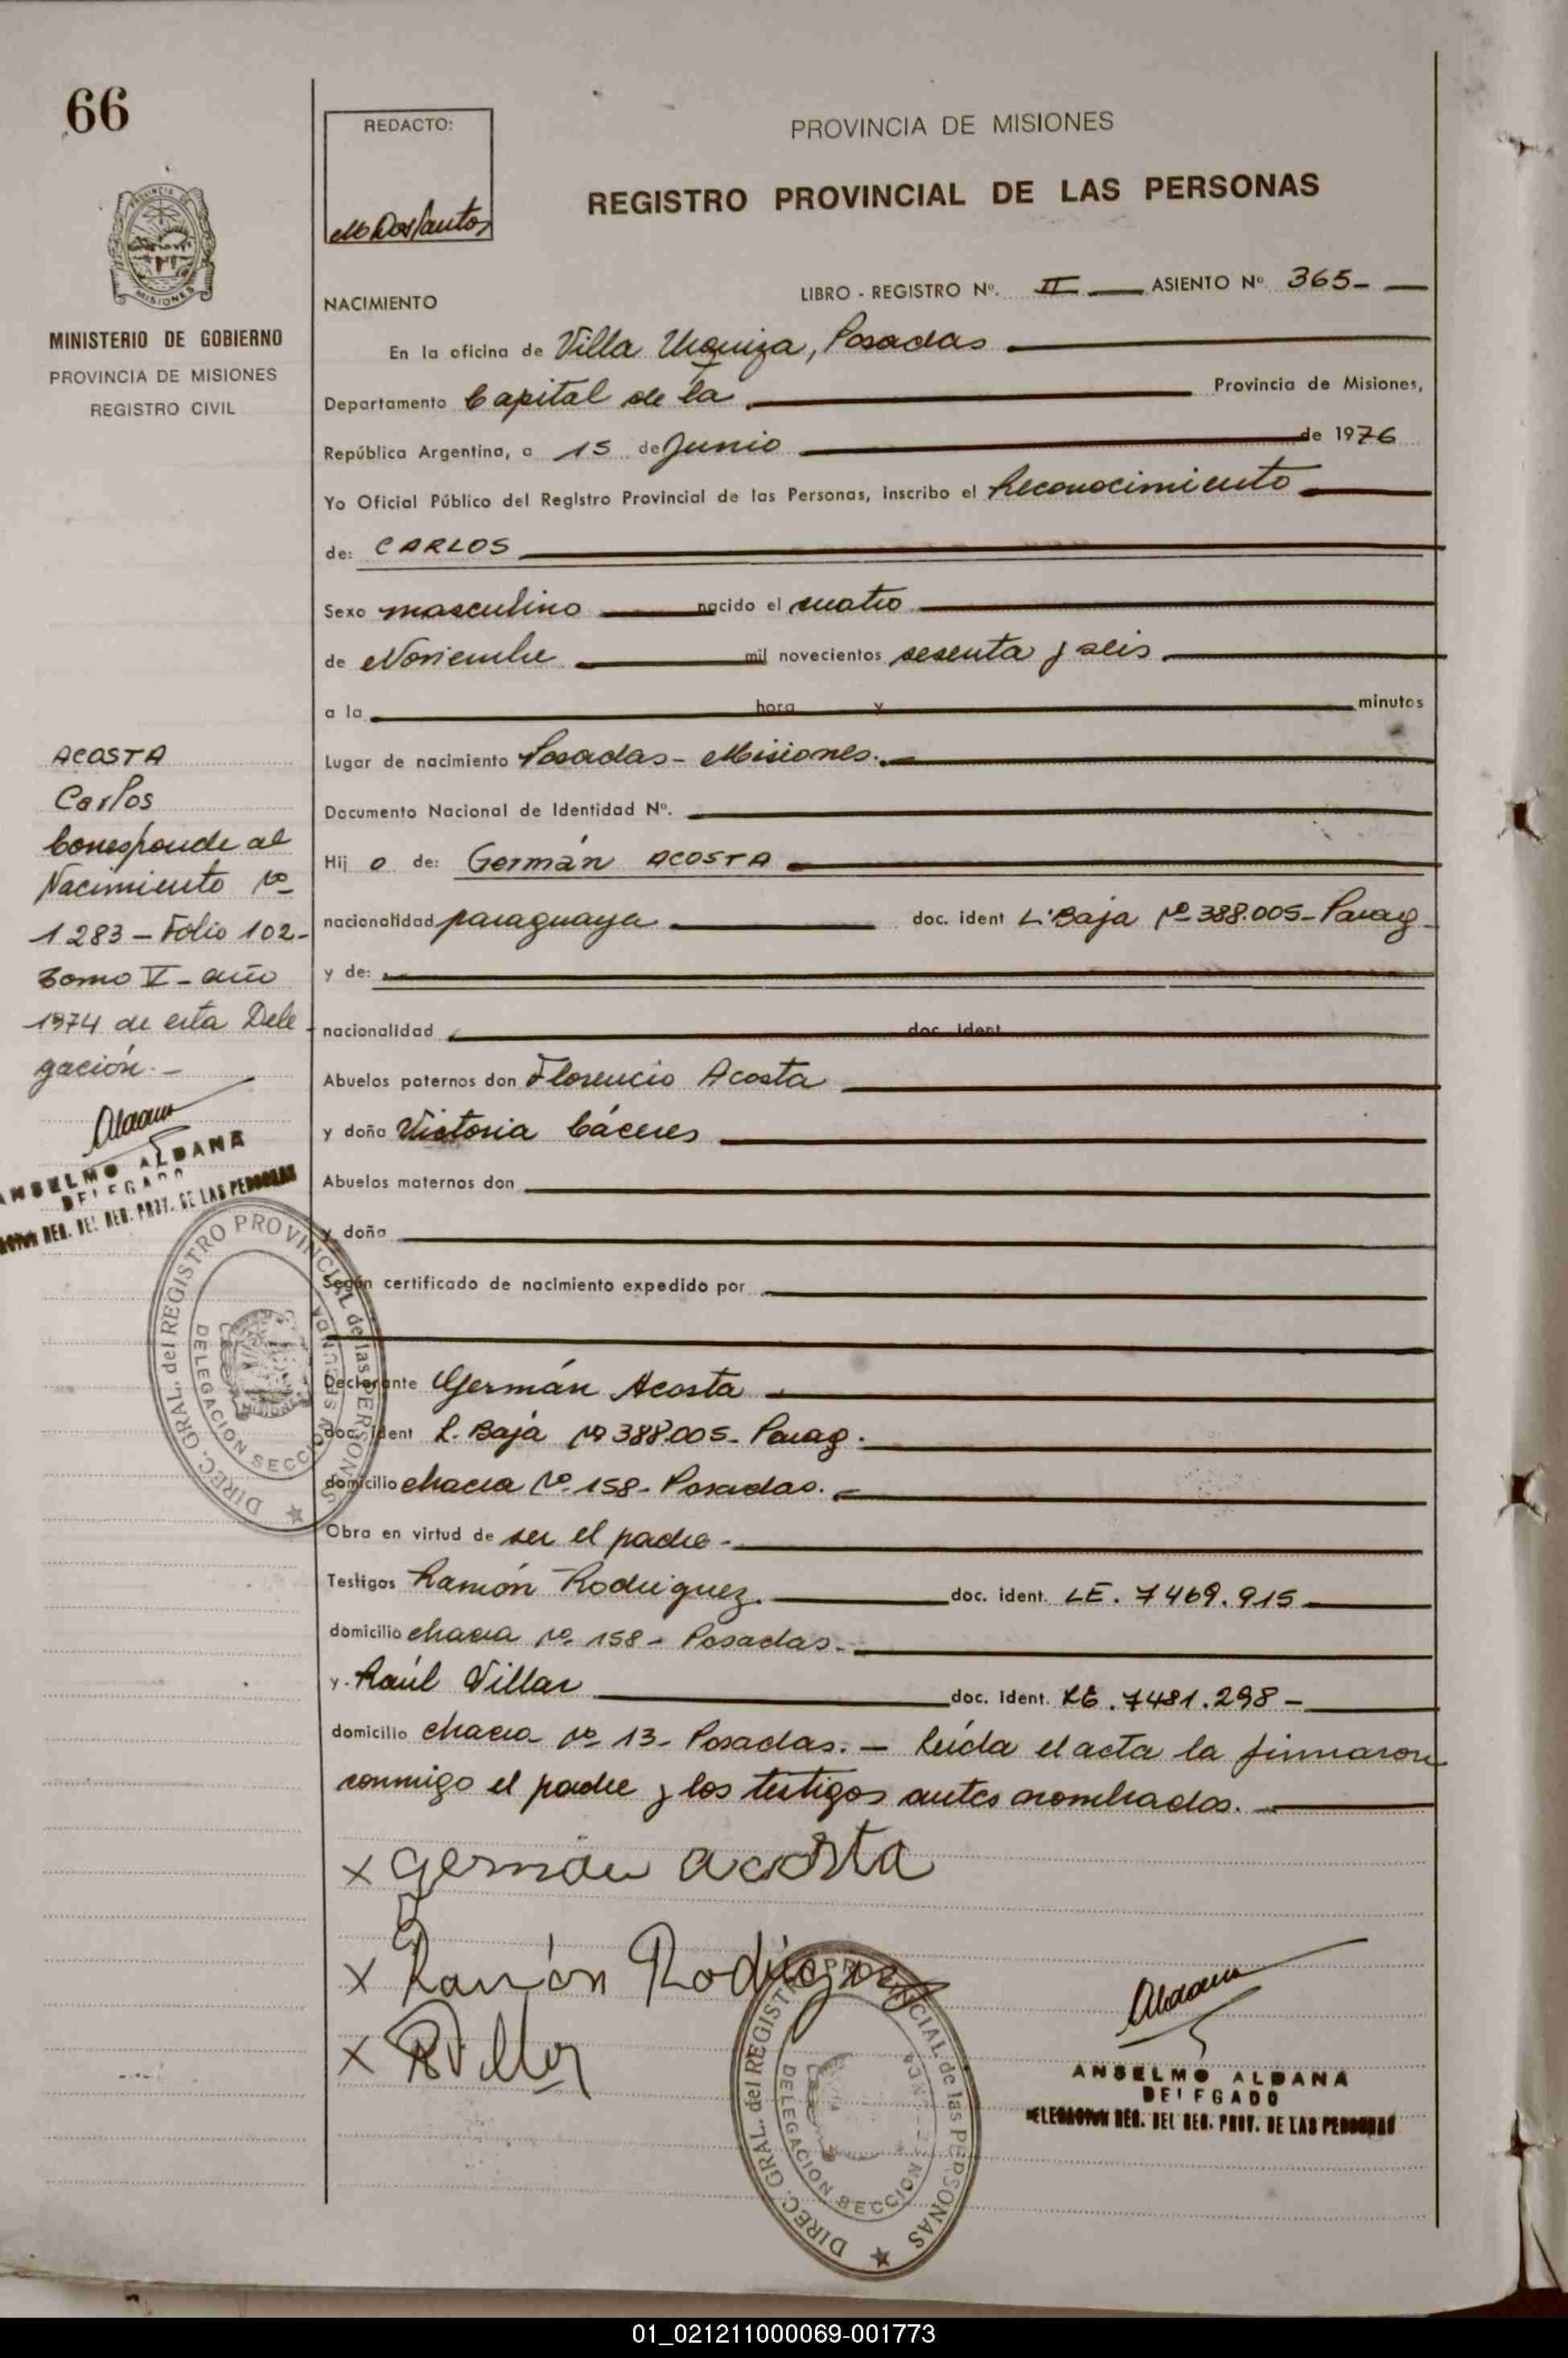 66
REDACTO:
M Dos Santos
PROVINCIA DE MISIONES
REGISTRO PROVINCIAL DE LAS PERSONAS
PROVINCIA DE
MISIONES
MINISTERIO DE GOBIERNO
PROVINCIA DE MISIONES
REGISTRO CIVIL
NACIMIENTO
LIBRO - REGISTRO Nº. II ASIENTO Nº 365-
En la oficina de Villa Urquiza, Posadas
Departamento Capital de la Provincia de Misiones,
República Argentina, a 15 de Junio de 1976
Yo Oficial Público del Registro Provincial de las Personas, inscribo el Reconocimiento
de: CARLOS
Sexo masculino nacido el cuatro
de Noviembre mil novecientos sesenta y seis
a la hora y minutos
Lugar de nacimiento Posadas - Misiones.
Documento Nacional de Identidad Nº.
Hij o de: Germán ACOSTA
nacionalidad paraguaya doc. ident L. Baja Nº 388.005- Parag
y de:
nacionalidad doc. ident
Abuelos paternos don Florencio Acosta
y doña Victoria Cáceres
Abuelos maternos don
y doña
Según certificado de nacimiento expedido por
Declarante Germán Acosta
doc. ident L. Baja Nº 388.005- Parag.
domicilio chacra Nº 158- Posadas.
Obra en virtud de ser el padre -
Testigos Ramón Rodriguez. doc. ident. LE. 7469.915
domicilio chacra Nº 158- Posadas.
y Raúl Villar doc. ident. LE. 7481.298 -
domicilio chacra Nº 13- Posadas. - Leída el acta la firmaron
conmigo el padre y los testigos antes nombrados.
ACOSTA
Carlos
Corresponde al
Nacimiento Nº
1283 - Folio 102-
Tomo V - año
1974 de esta Dele
gación. -
ANSELMO ALDANA
DELEGADO
REG. DEL REG. PROV. DE LAS PERSONAS
DIREC. GRAL. del REGISTRO PROVINCIAL de las PERSONAS
DELEGACION SECCION SEGUNDA
x german acosta
x Ramón Rodriguez
x RVillar
DIREC. GRAL. del REGISTRO PROVINCIAL de las PERSONAS
DELEGACION SECCION
ANSELMO ALDANA
DELEGADO
DELEGACION REG. DEL REG. PROV. DE LAS PERSONAS
01_021211000069-001773